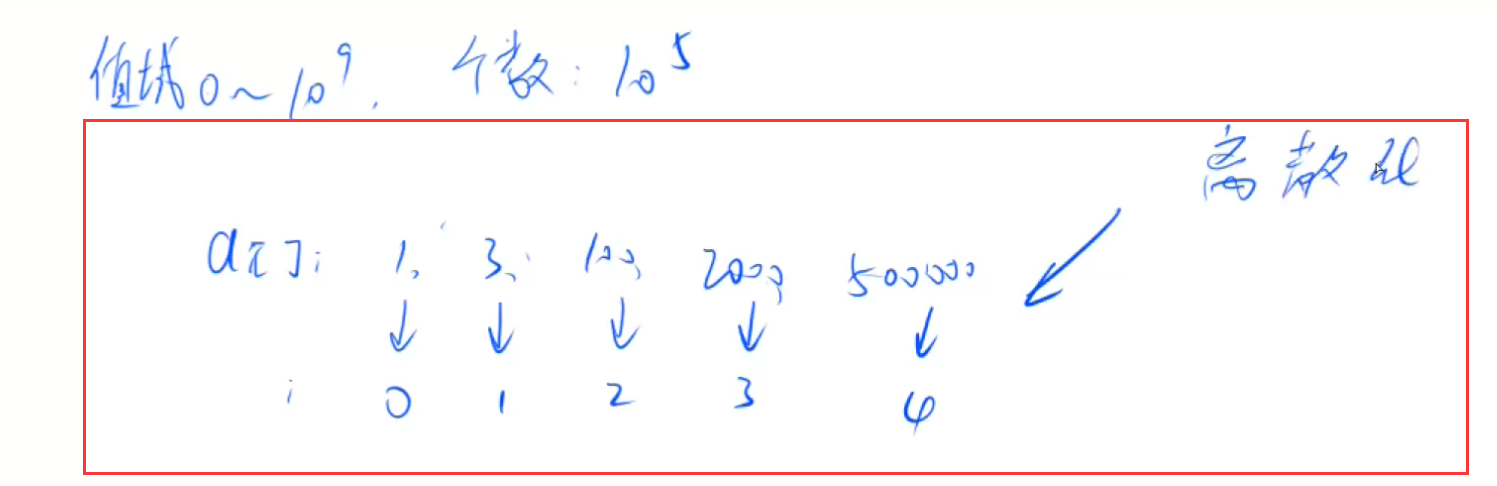 值域0~10^9, 个数:10^5
离散化
a[]: 1, 3, 100, 2000, 500000
↓ ↓ ↓ ↓ ↓
i 0 1 2 3 4